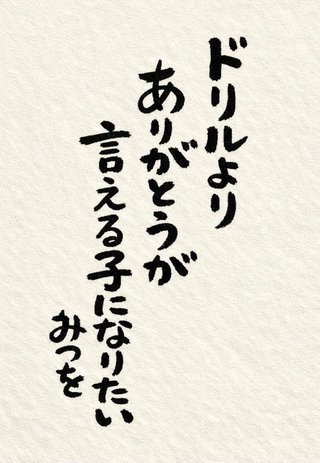 ドリルより
ありがとうが
言える子になりたい
みつを